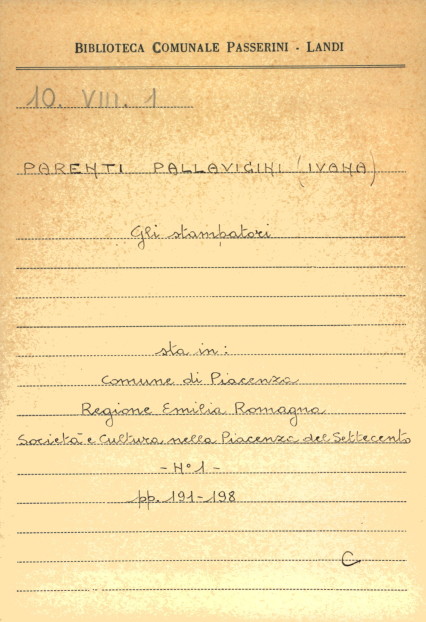 BIBLIOTECA COMUNALE PASSERINI - LANDI
10. VIII. 1
PARENTI PALLAVICINI (IVANA)
Gli stampatori
sta in:
Comune di Piacenza
Regione Emilia Romagna
Società e Cultura nella Piacenza del Settecento
- N° 1 -
pp. 191-198
C